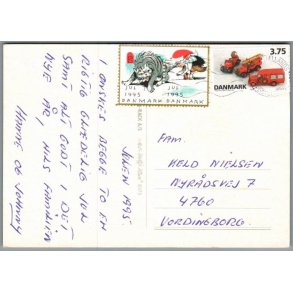 JULEN 1995.
I ØNSKES BEGGE TO EN
RIGTIG GLÆDELIG JUL
SAMT ALT GODT I DET
NYE ÅR, HILS FAMILIEN
HANNE OG JOHNNY
JUL
1995
DANMARK
JUL
1995
DANMARK
3.75
DANMARK
FAM.
HELD NIELSEN
NYRÅDSVEJ 7
4760
VORDINGBORG.